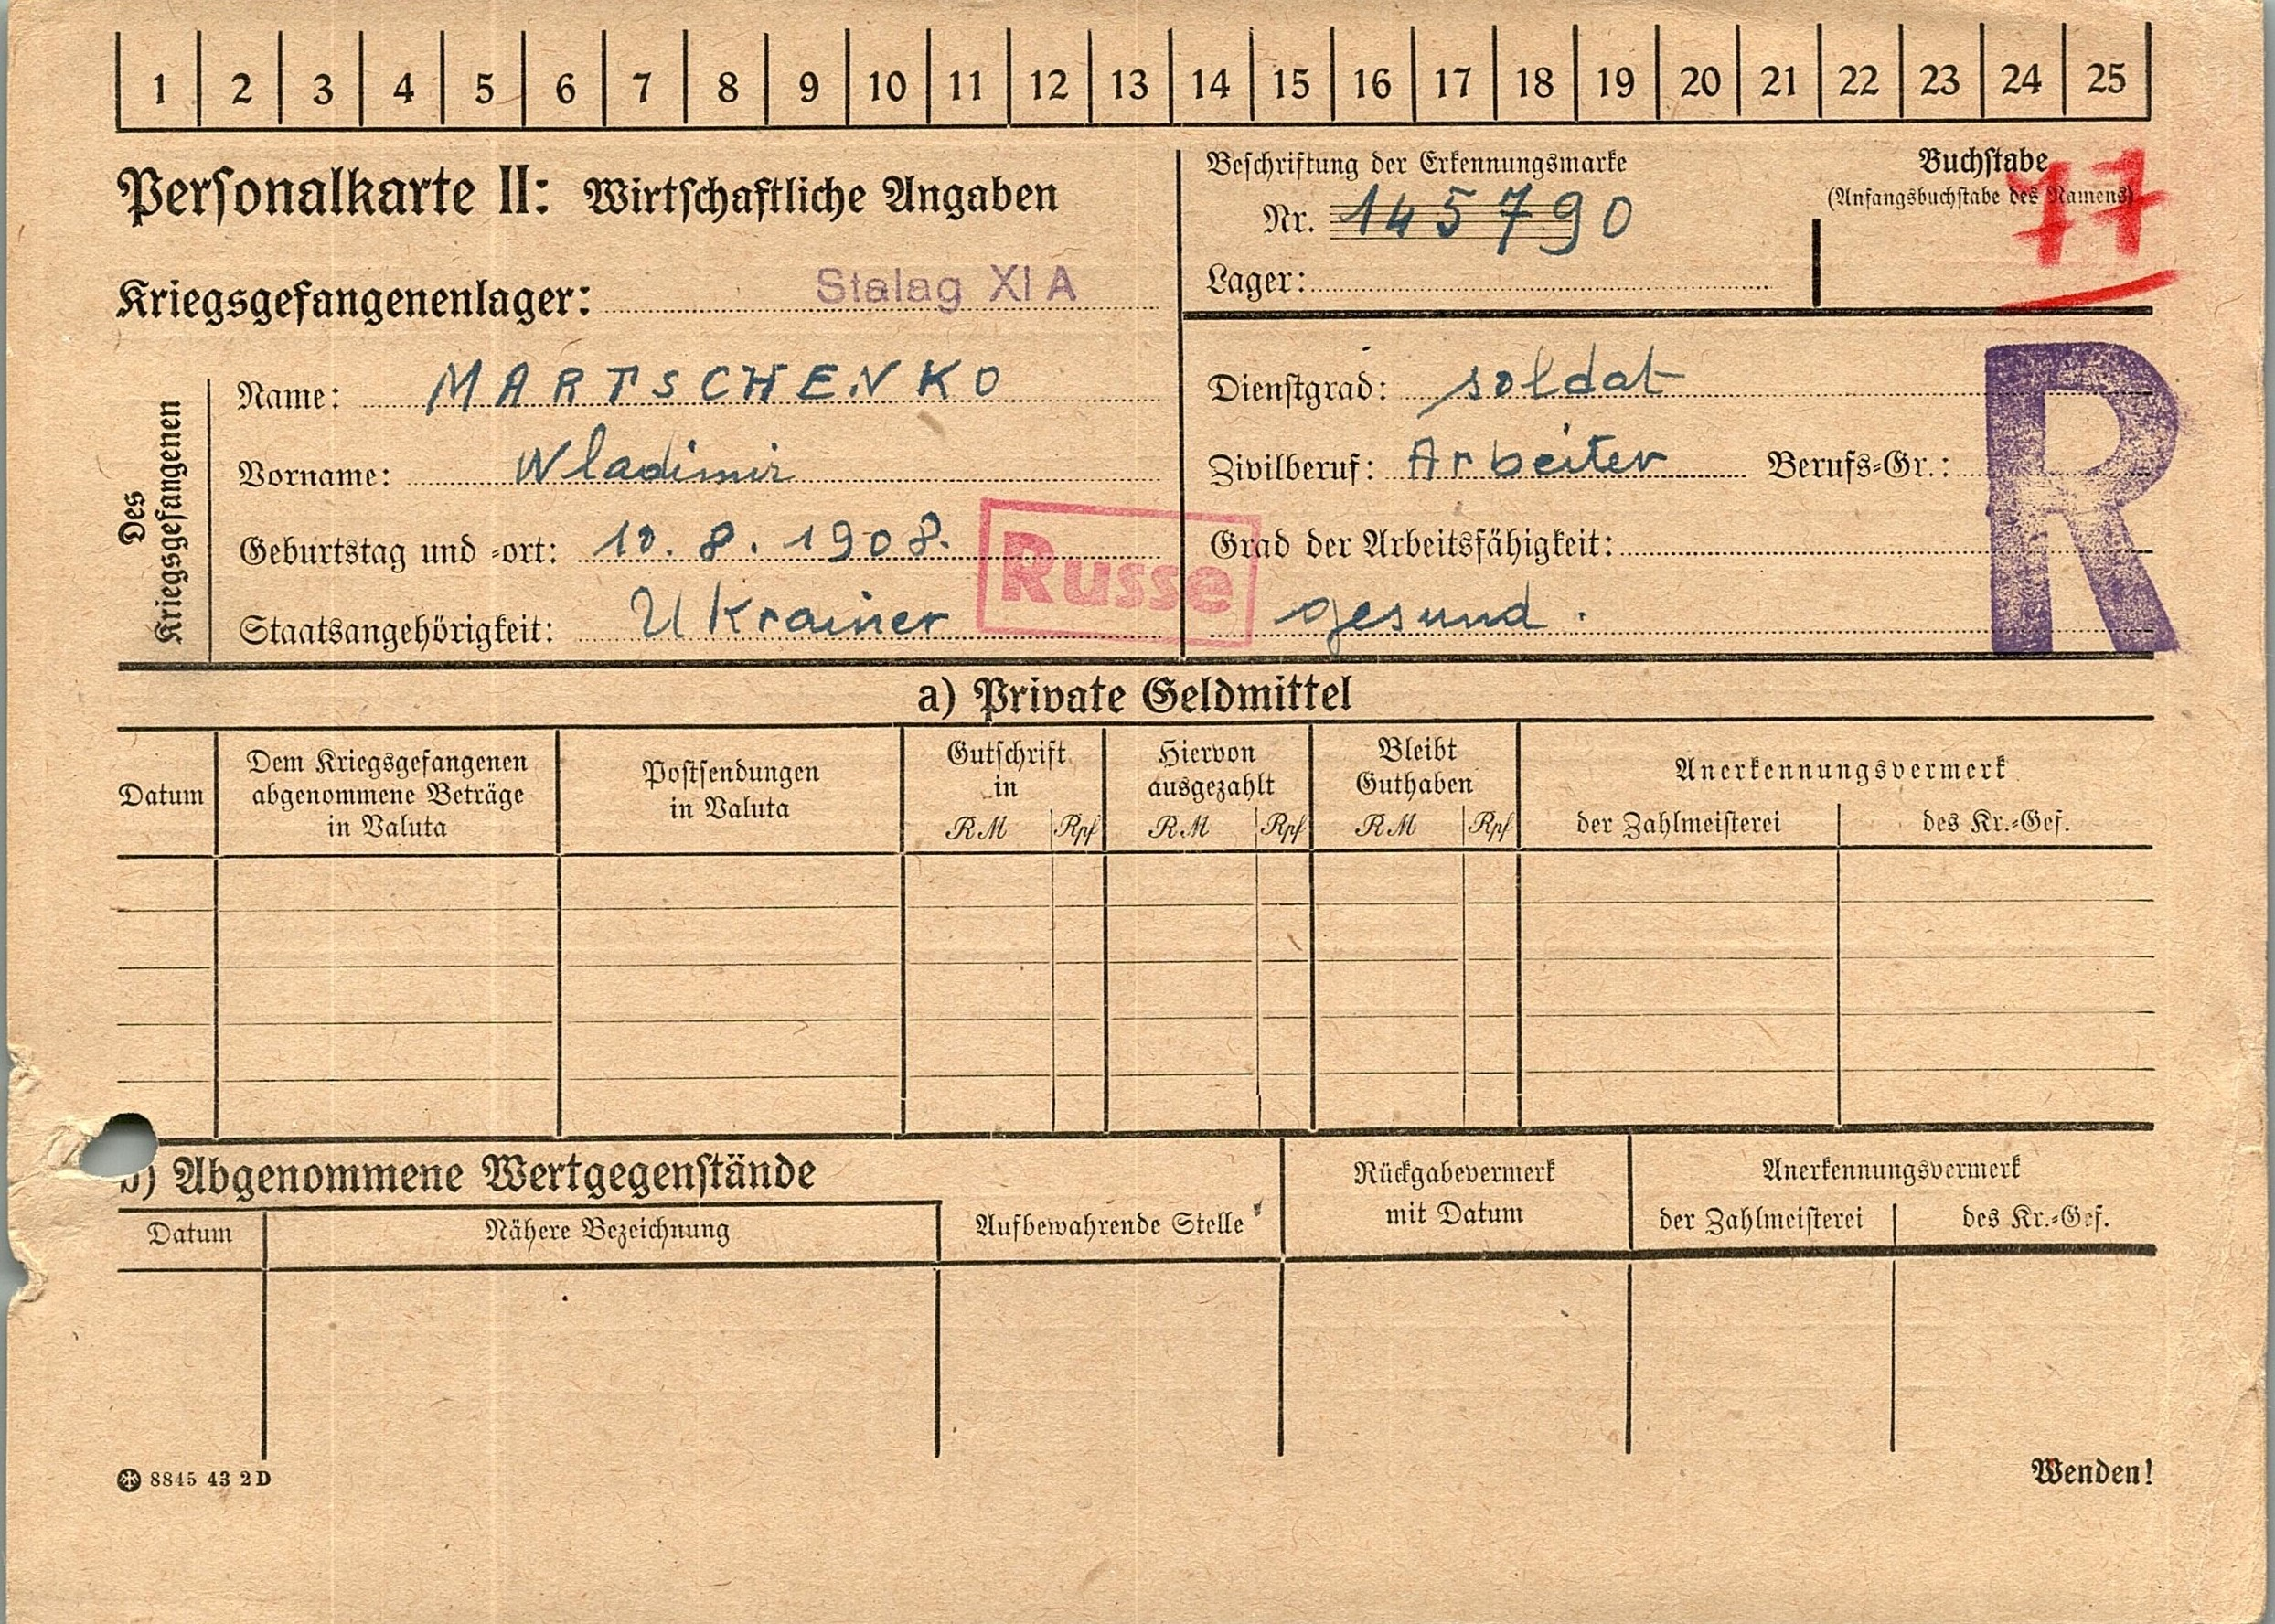 1 2 3 4 5 6 7 8 9 10 11 12 13 14 15 16 17 18 19 20 21 22 23 24 25
Personalkarte II: Wirtschaftliche Angaben
Kriegsgefangenenlager: Stalag XI A
Beschriftung der Erkennungsmarke
Nr. 145790
Lager:
Buchstabe
(Anfangsbuchstabe des Namens)
77
Des Kriegsgefangenen
Name: MARTSCHENKO
Vorname: Wladimir
Geburtstag und -ort: 10. 8. 1908.
Staatsangehörigkeit: Ukrainer
Russe
Dienstgrad: soldat
Zivilberuf: Arbeiter Berufs-Gr.:
Grad der Arbeitsfähigkeit:
gesund.
R
a) Private Geldmittel
Datum
Dem Kriegsgefangenen
abgenommene Beträge
in Valuta
Postsendungen
in Valuta
Gutschrift
in
RM Rpf
Hiervon
ausgezahlt
RM Rpf
Bleibt
Guthaben
RM Rpf
Anerkennungsvermerk
der Zahlmeisterei des Kr.-Gef.
b) Abgenommene Wertgegenstände
Datum Nähere Bezeichnung
Aufbewahrende Stelle
Rückgabevermerk
mit Datum
Anerkennungsvermerk
der Zahlmeisterei des Kr.-Gef.
8845 43 2D
Wenden!